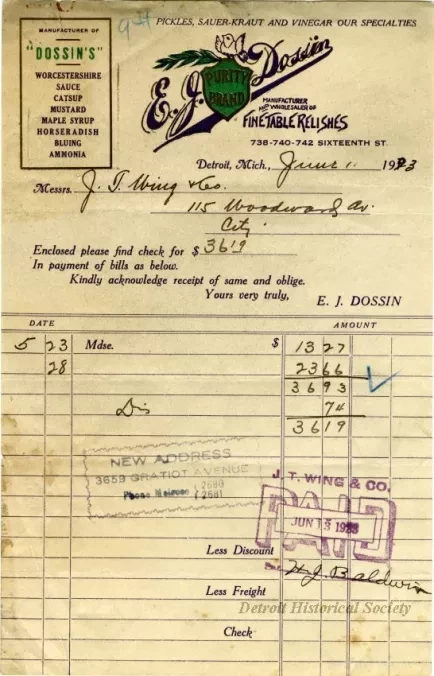 PICKLES, SAUER-KRAUT AND VINEGAR OUR SPECIALTIES
MANUFACTURER OF
"DOSSIN'S"
WORCESTERSHIRE
SAUCE
CATSUP
MUSTARD
MAPLE SYRUP
HORSERADISH
BLUING
AMMONIA
E. J. Dossin
PURITY
BRAND
MANUFACTURER
AND WHOLESALER OF
FINE TABLE RELISHES
738-740-742 SIXTEENTH ST.
Detroit, Mich., June 1 1923
Messrs. J. T. Wing & Co.
115 Woodward Av.
City
Enclosed please find check for $ 3619
In payment of bills as below.
Kindly acknowledge receipt of same and oblige.
Yours very truly, E. J. DOSSIN
DATE AMOUNT
5 23 Mdse. $ 13 27
28 23 66
36 93
Dis 74
36 19
NEW ADDRESS
3659 GRATIOT AVENUE
Phone Melrose 2680
2681
J. T. WING & CO.
PAID
JUN 15 1923
Less Discount
H. J. Baldwin
Less Freight
Detroit Historical Society
Check